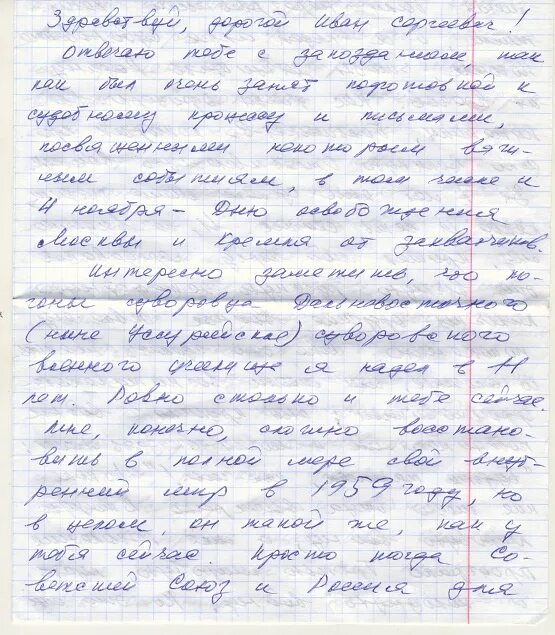 Здравствуй, дорогой Иван Сергеевич!
Отвечаю тебе с запозданием, так
как был очень занят подготовкой к
судебному процессу и письмами,
посвященными некоторым важ-
ным событиям, в том числе и
4 ноября – Дню освобождения
Москвы и Кремля от захватчиков.
Интересно заметить, что по-
гоны суворовца Дальневосточного
(ныне Уссурийское) суворовского
военного училища я надел в 11
лет. Ровно столько и тебе сейчас.
Мне, конечно, сложно восстано-
вить в полной мере свой внут-
ренний мир в 1959 году, но
в целом, он такой же, как у
тебя сейчас. Просто тогда Со-
ветский Союз и Россия для